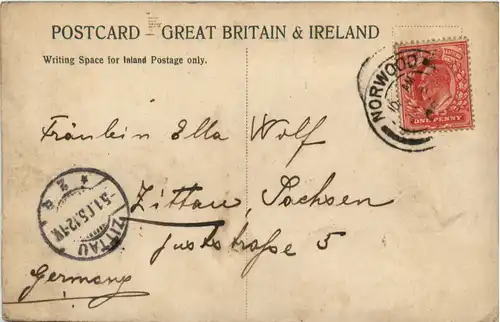 POSTCARD – GREAT BRITAIN & IRELAND
Writing Space for Inland Postage only.
NORWOOD
ONE PENNY
Fräulein Ella Wolf
Zittau, Sachsen
straße 5
Germany
ZITTAU